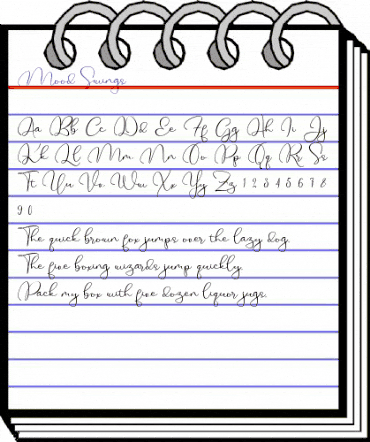 Mood Swings
Aa Bb Cc Dd Ee Ff Gg Hh Ii Jj
Kk Ll Mm Nn Oo Pp Qq Rr Ss
Tt Uu Vv Ww Xx Yy Zz 1 2 3 4 5 6 7 8
9 0
The quick brown fox jumps over the lazy dog.
The five boxing wizards jump quickly.
Pack my box with five dozen liquor jugs.